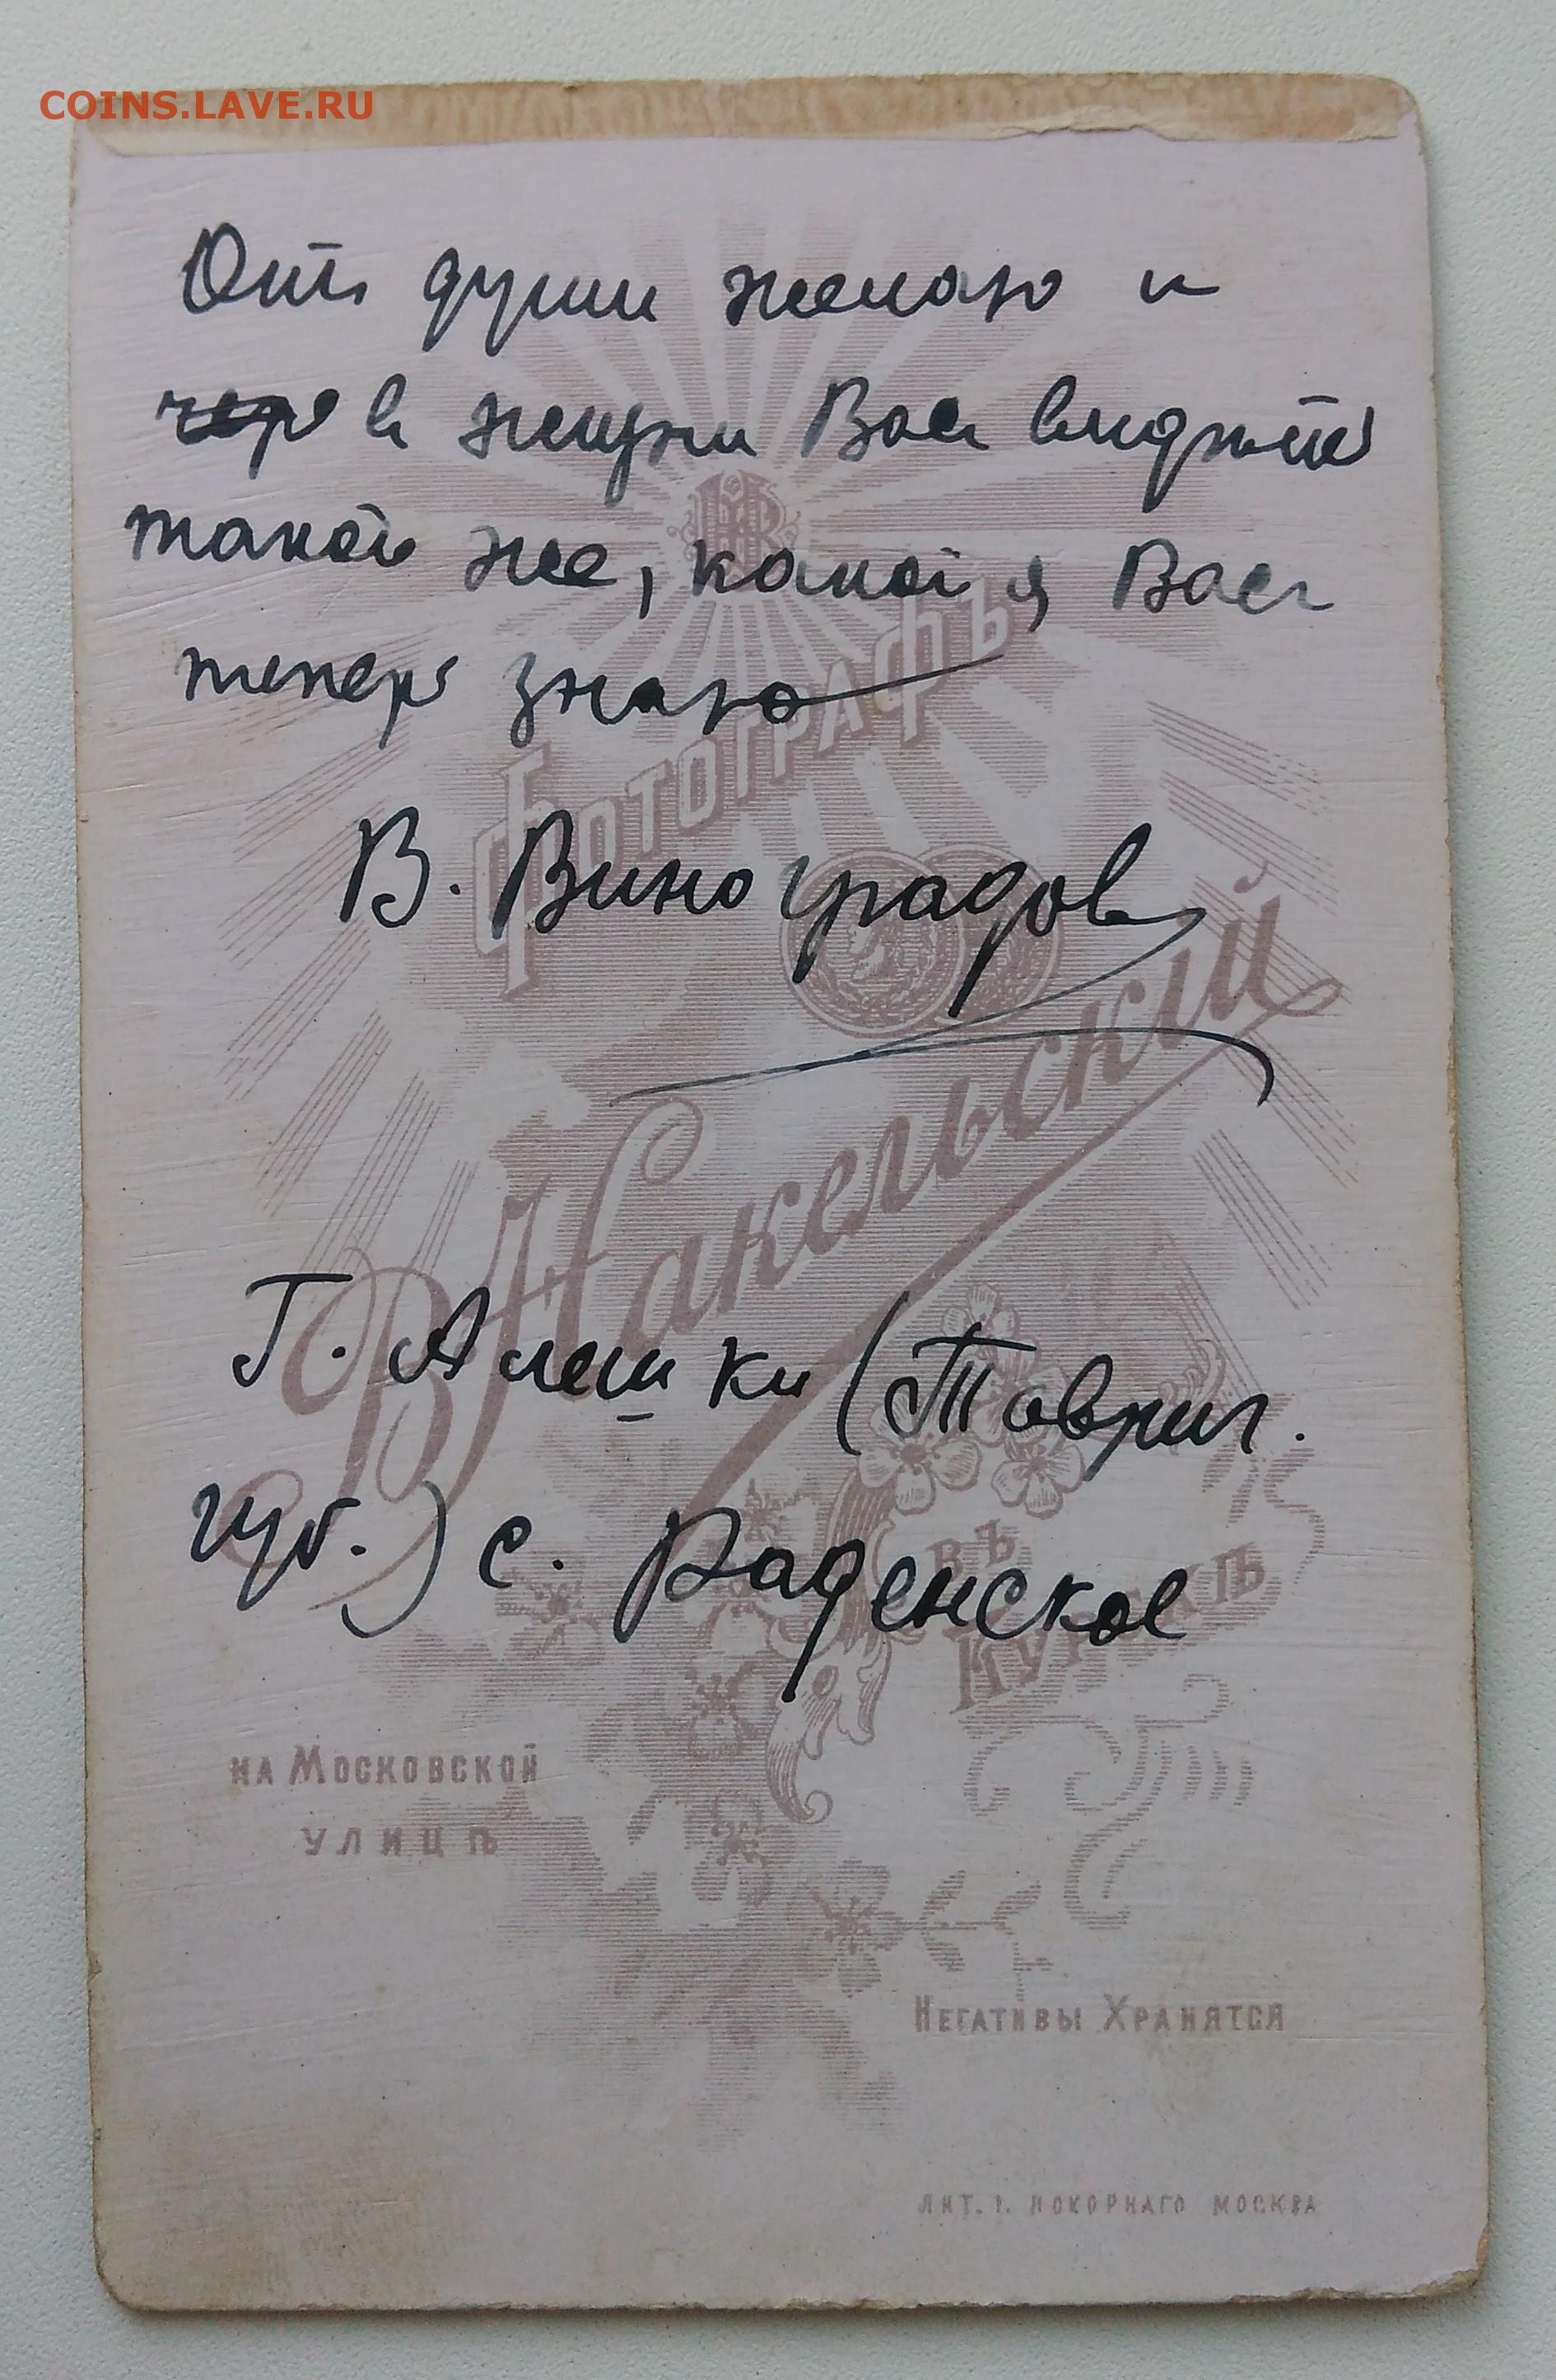 COINS.LAVE.RU
Отъ души желаю и
в жизни Вас видѣть
такой же, какой я Вас
теперь знаю
В. Виноградов
Г. Алешки (Таврич.
губ.) с. Раденское
Фотографъ
В Накельский
въ
Курскѣ
на Московской
улицѣ
Негативы Хранятся
Лит. І. Покорнаго Москва